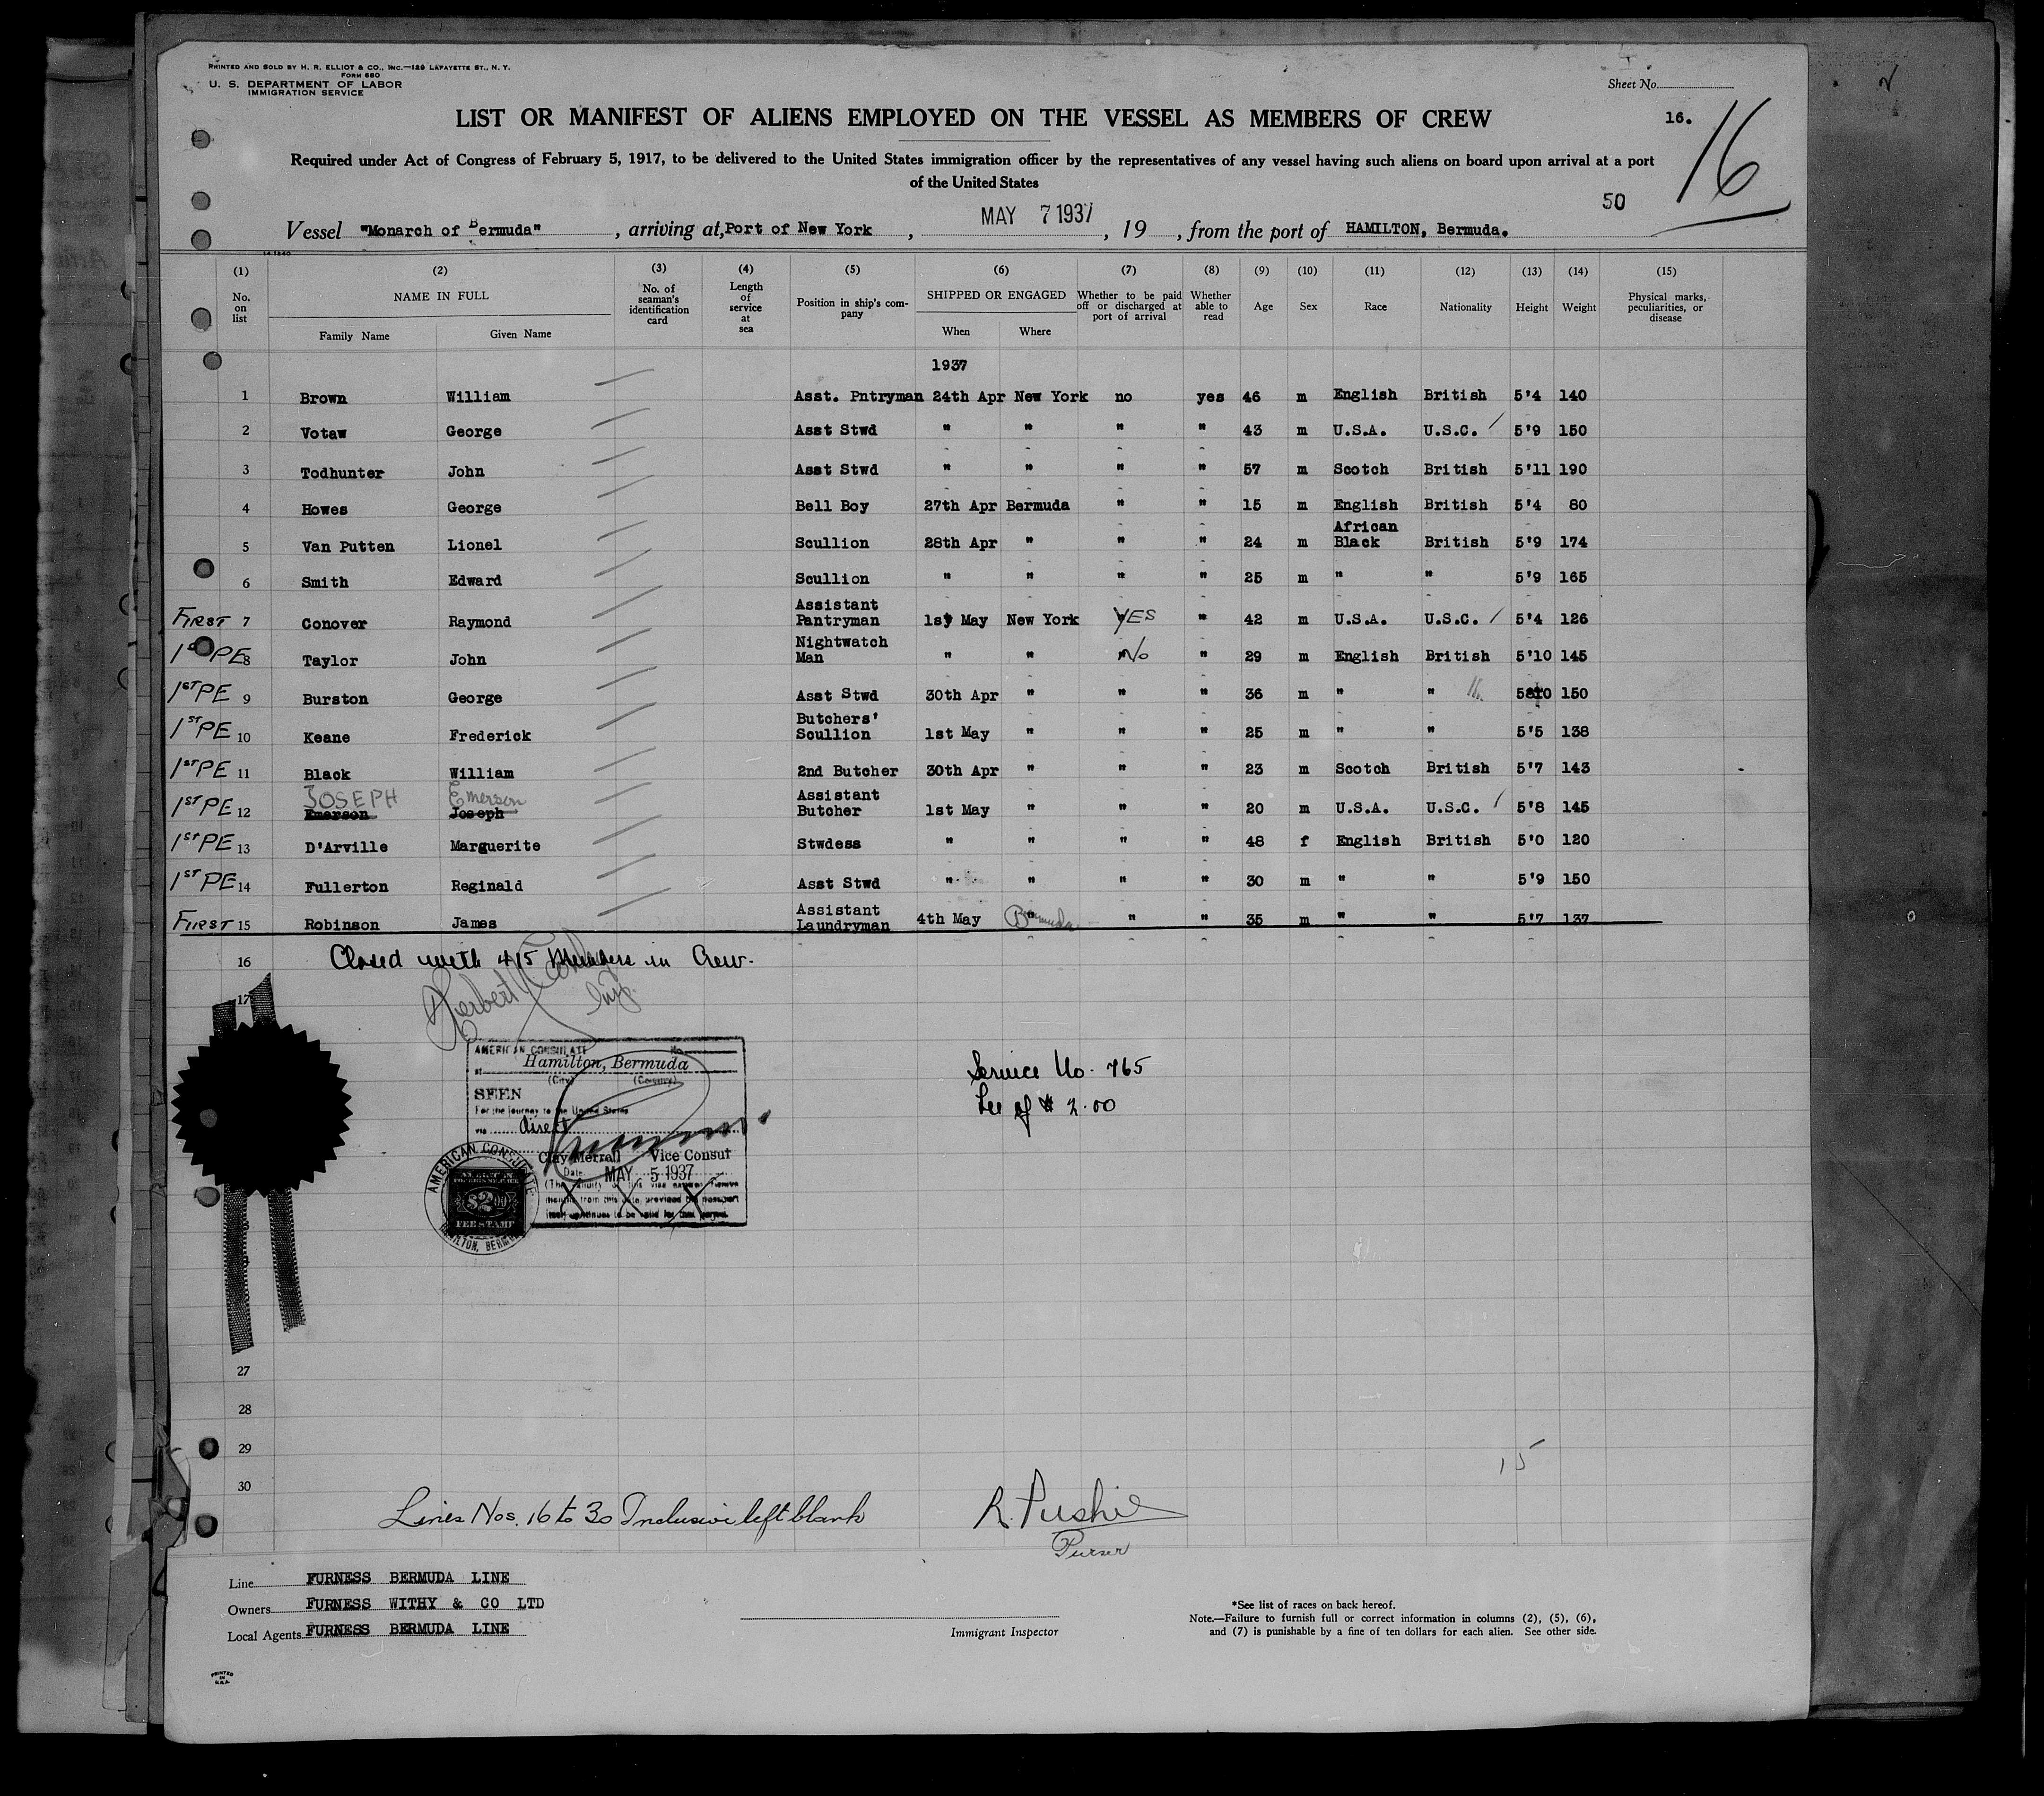 PRINTED AND SOLD BY H. R. ELLIOT & CO., INC.—129 LAFAYETTE ST., N. Y.
FORM 680
U. S. DEPARTMENT OF LABOR
IMMIGRATION SERVICE
Sheet No.
16.
16
LIST OR MANIFEST OF ALIENS EMPLOYED ON THE VESSEL AS MEMBERS OF CREW
Required under Act of Congress of February 5, 1917, to be delivered to the United States immigration officer by the representatives of any vessel having such aliens on board upon arrival at a port
of the United States
50
Vessel "Monarch of Bermuda" , arriving at, Port of New York , MAY 7 1937 , 19 , from the port of HAMILTON, Bermuda.
(1) (2) (3) (4) (5) (6) (7) (8) (9) (10) (11) (12) (13) (14) (15)
No. on list NAME IN FULL Family Name Given Name No. of seaman's identification card Length of service at sea Position in ship's company SHIPPED OR ENGAGED When Where Whether to be paid off or discharged at port of arrival Whether able to read Age Sex Race Nationality Height Weight Physical marks, peculiarities, or disease
1937
1 Brown William Asst. Pntryman 24th Apr New York no yes 46 m English British 5'4 140
2 Votaw George Asst Stwd " " " " 43 m U.S.A. U.S.C. 5'9 150
3 Todhunter John Asst Stwd " " " " 57 m Scotch British 5'11 190
4 Howes George Bell Boy 27th Apr Bermuda " " 15 m English British 5'4 80
5 Van Putten Lionel Scullion 28th Apr " " " 24 m African Black British 5'9 174
6 Smith Edward Scullion " " " " 25 m " " 5'9 165
FIRST 7 Conover Raymond Assistant Pantryman 1st May New York YES " 42 m U.S.A. U.S.C. 5'4 126
1st PE 8 Taylor John Nightwatch Man " " No " 29 m English British 5'10 145
1ST PE 9 Burston George Asst Stwd 30th Apr " " " 36 m " " 5'10 150
1ST PE 10 Keane Frederick Butchers' Scullion 1st May " " " 25 m " " 5'5 138
1ST PE 11 Black William 2nd Butcher 30th Apr " " " 23 m Scotch British 5'7 143
JOSEPH Emerson
1ST PE 12 Emerson Joseph Assistant Butcher 1st May " " " 20 m U.S.A. U.S.C. 5'8 145
1ST PE 13 D'Arville Marguerite Stwdess " " " " 48 f English British 5'0 120
1ST PE 14 Fullerton Reginald Asst Stwd " " " " 30 m " " 5'9 150
FIRST 15 Robinson James Assistant Laundryman 4th May Bermuda " " 35 m " " 5'7 137
16 Closed with 415 Members in Crew.
17
Herbert
AMERICAN CONSULATE No.
at Hamilton, Bermuda
(City) (Country)
SEEN
For the journey to the United States
via direct
Clay Merrall Vice Consul
Date MAY 5 1937
(The validity of this visa
months from this date, provided the passport
itself continues to be valid for that period.
AMERICAN CONSULATE
HAMILTON, BERMUDA
$2.00
FEE STAMP
Service No. 765
Fee of $ 2.00
27
28
29
15
30
Lines Nos. 16 to 30 Inclusive left blank
R. Pushie
Purser
Line FURNESS BERMUDA LINE
Owners FURNESS WITHY & CO LTD
Local Agents FURNESS BERMUDA LINE
Immigrant Inspector
*See list of races on back hereof.
Note.—Failure to furnish full or correct information in columns (2), (5), (6),
and (7) is punishable by a fine of ten dollars for each alien. See other side.
PRINTED
IN
U.S.A.